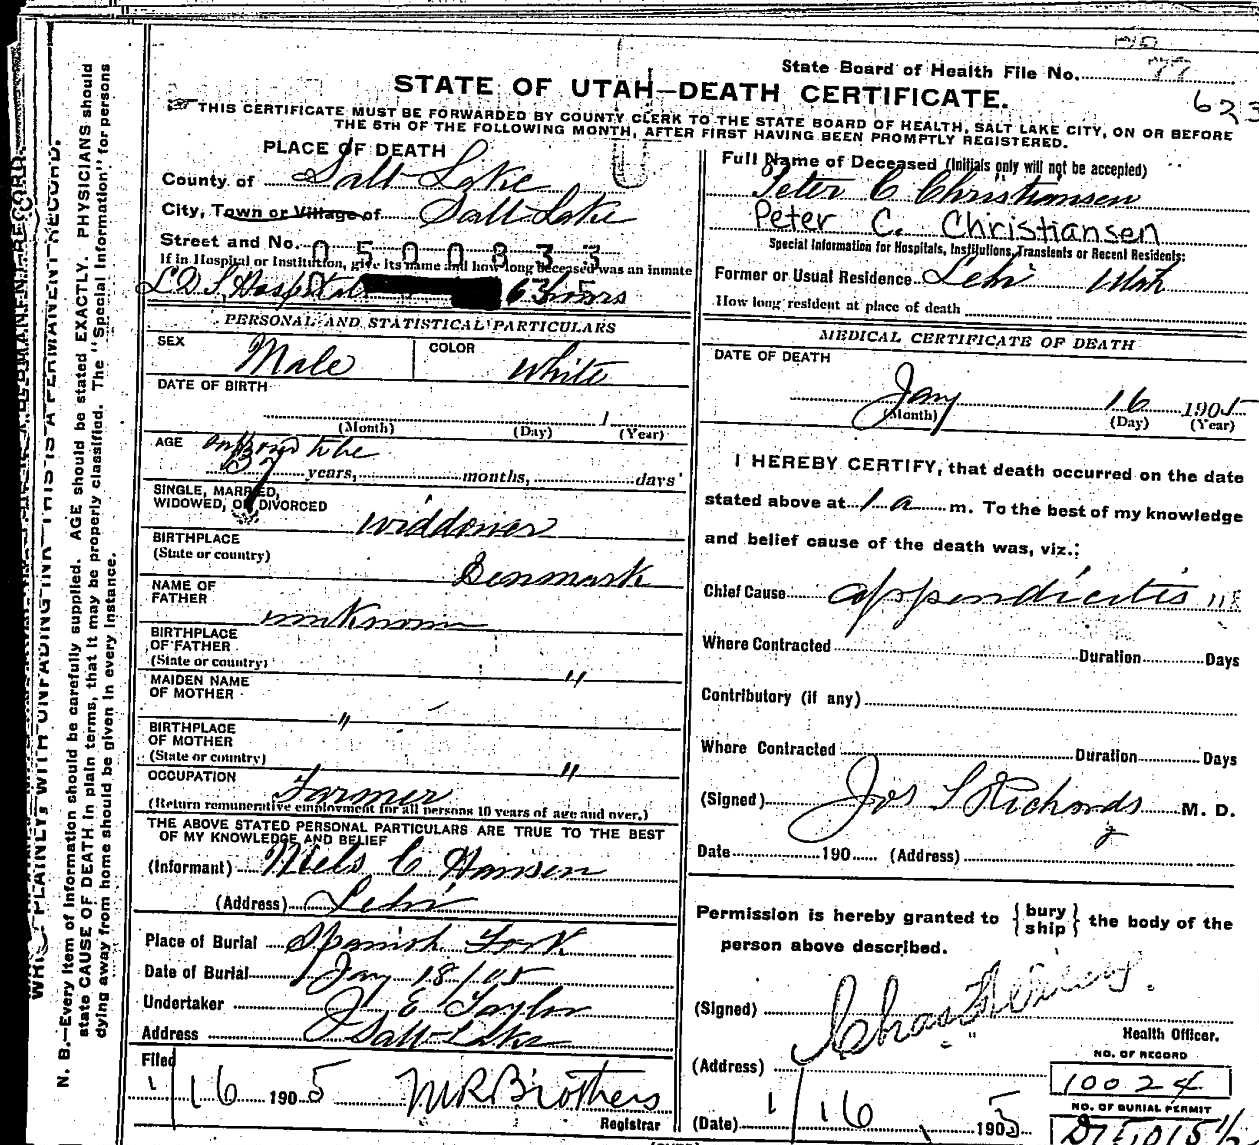 State Board of Health File No. 77
623
STATE OF UTAH—DEATH CERTIFICATE.
THIS CERTIFICATE MUST BE FORWARDED BY COUNTY CLERK TO THE STATE BOARD OF HEALTH, SALT LAKE CITY, ON OR BEFORE
THE 5TH OF THE FOLLOWING MONTH, AFTER FIRST HAVING BEEN PROMPTLY REGISTERED.
PLACE OF DEATH
County of Salt Lake
City, Town or Village of Salt Lake
Street and No.
0500833
If in Hospital or Institution, give its name and how long deceased was an inmate
L D S Hospital 6 hours
PERSONAL AND STATISTICAL PARTICULARS
SEX Male
COLOR White
DATE OF BIRTH
(Month) (Day) 1 (Year)
AGE
37 years, months, days
SINGLE, MARRIED,
WIDOWED, OR DIVORCED widdower
BIRTHPLACE
(State or country) Denmark
NAME OF
FATHER unknown
BIRTHPLACE
OF FATHER
(State or country) "
MAIDEN NAME
OF MOTHER "
BIRTHPLACE
OF MOTHER
(State or country) "
OCCUPATION Farmer
(Return remunerative employment for all persons 10 years of age and over.)
THE ABOVE STATED PERSONAL PARTICULARS ARE TRUE TO THE BEST
OF MY KNOWLEDGE AND BELIEF
(Informant) Niels C Hansen
(Address) Lehi
Place of Burial Spanish Fork
Date of Burial Jan 18/05
Undertaker J E Taylor
Address Salt Lake
Filed
1/16 1905 M R Brothers
Registrar
Full Name of Deceased (Initials only will not be accepted)
Peter C Christiansen
Peter C. Christiansen
Special Information for Hospitals, Institutions, Transients or Recent Residents:
Former or Usual Residence Lehi Utah
How long resident at place of death
MEDICAL CERTIFICATE OF DEATH
DATE OF DEATH
Jany 16 1905
(Month) (Day) (Year)
I HEREBY CERTIFY, that death occurred on the date
stated above at 1 a m. To the best of my knowledge
and belief cause of the death was, viz.:
Chief Cause appendicitis 118
Where Contracted Duration Days
Contributory (if any)
Where Contracted Duration Days
(Signed) Jos S Richards M. D.
Date 190 (Address)
Permission is hereby granted to {bury ship} the body of the
person above described.
(Signed) Chas
Health Officer.
(Address)
(Date) 1/16 1905
NO. OF RECORD
10024
NO. OF BURIAL PERMIT
WRITE PLAINLY, WITH UNFADING INK—THIS IS A PERMANENT RECORD.
N. B.—Every item of information should be carefully supplied. AGE should be stated EXACTLY. PHYSICIANS should
state CAUSE OF DEATH in plain terms, that it may be properly classified. The "Special Information" for persons
dying away from home should be given in every instance.